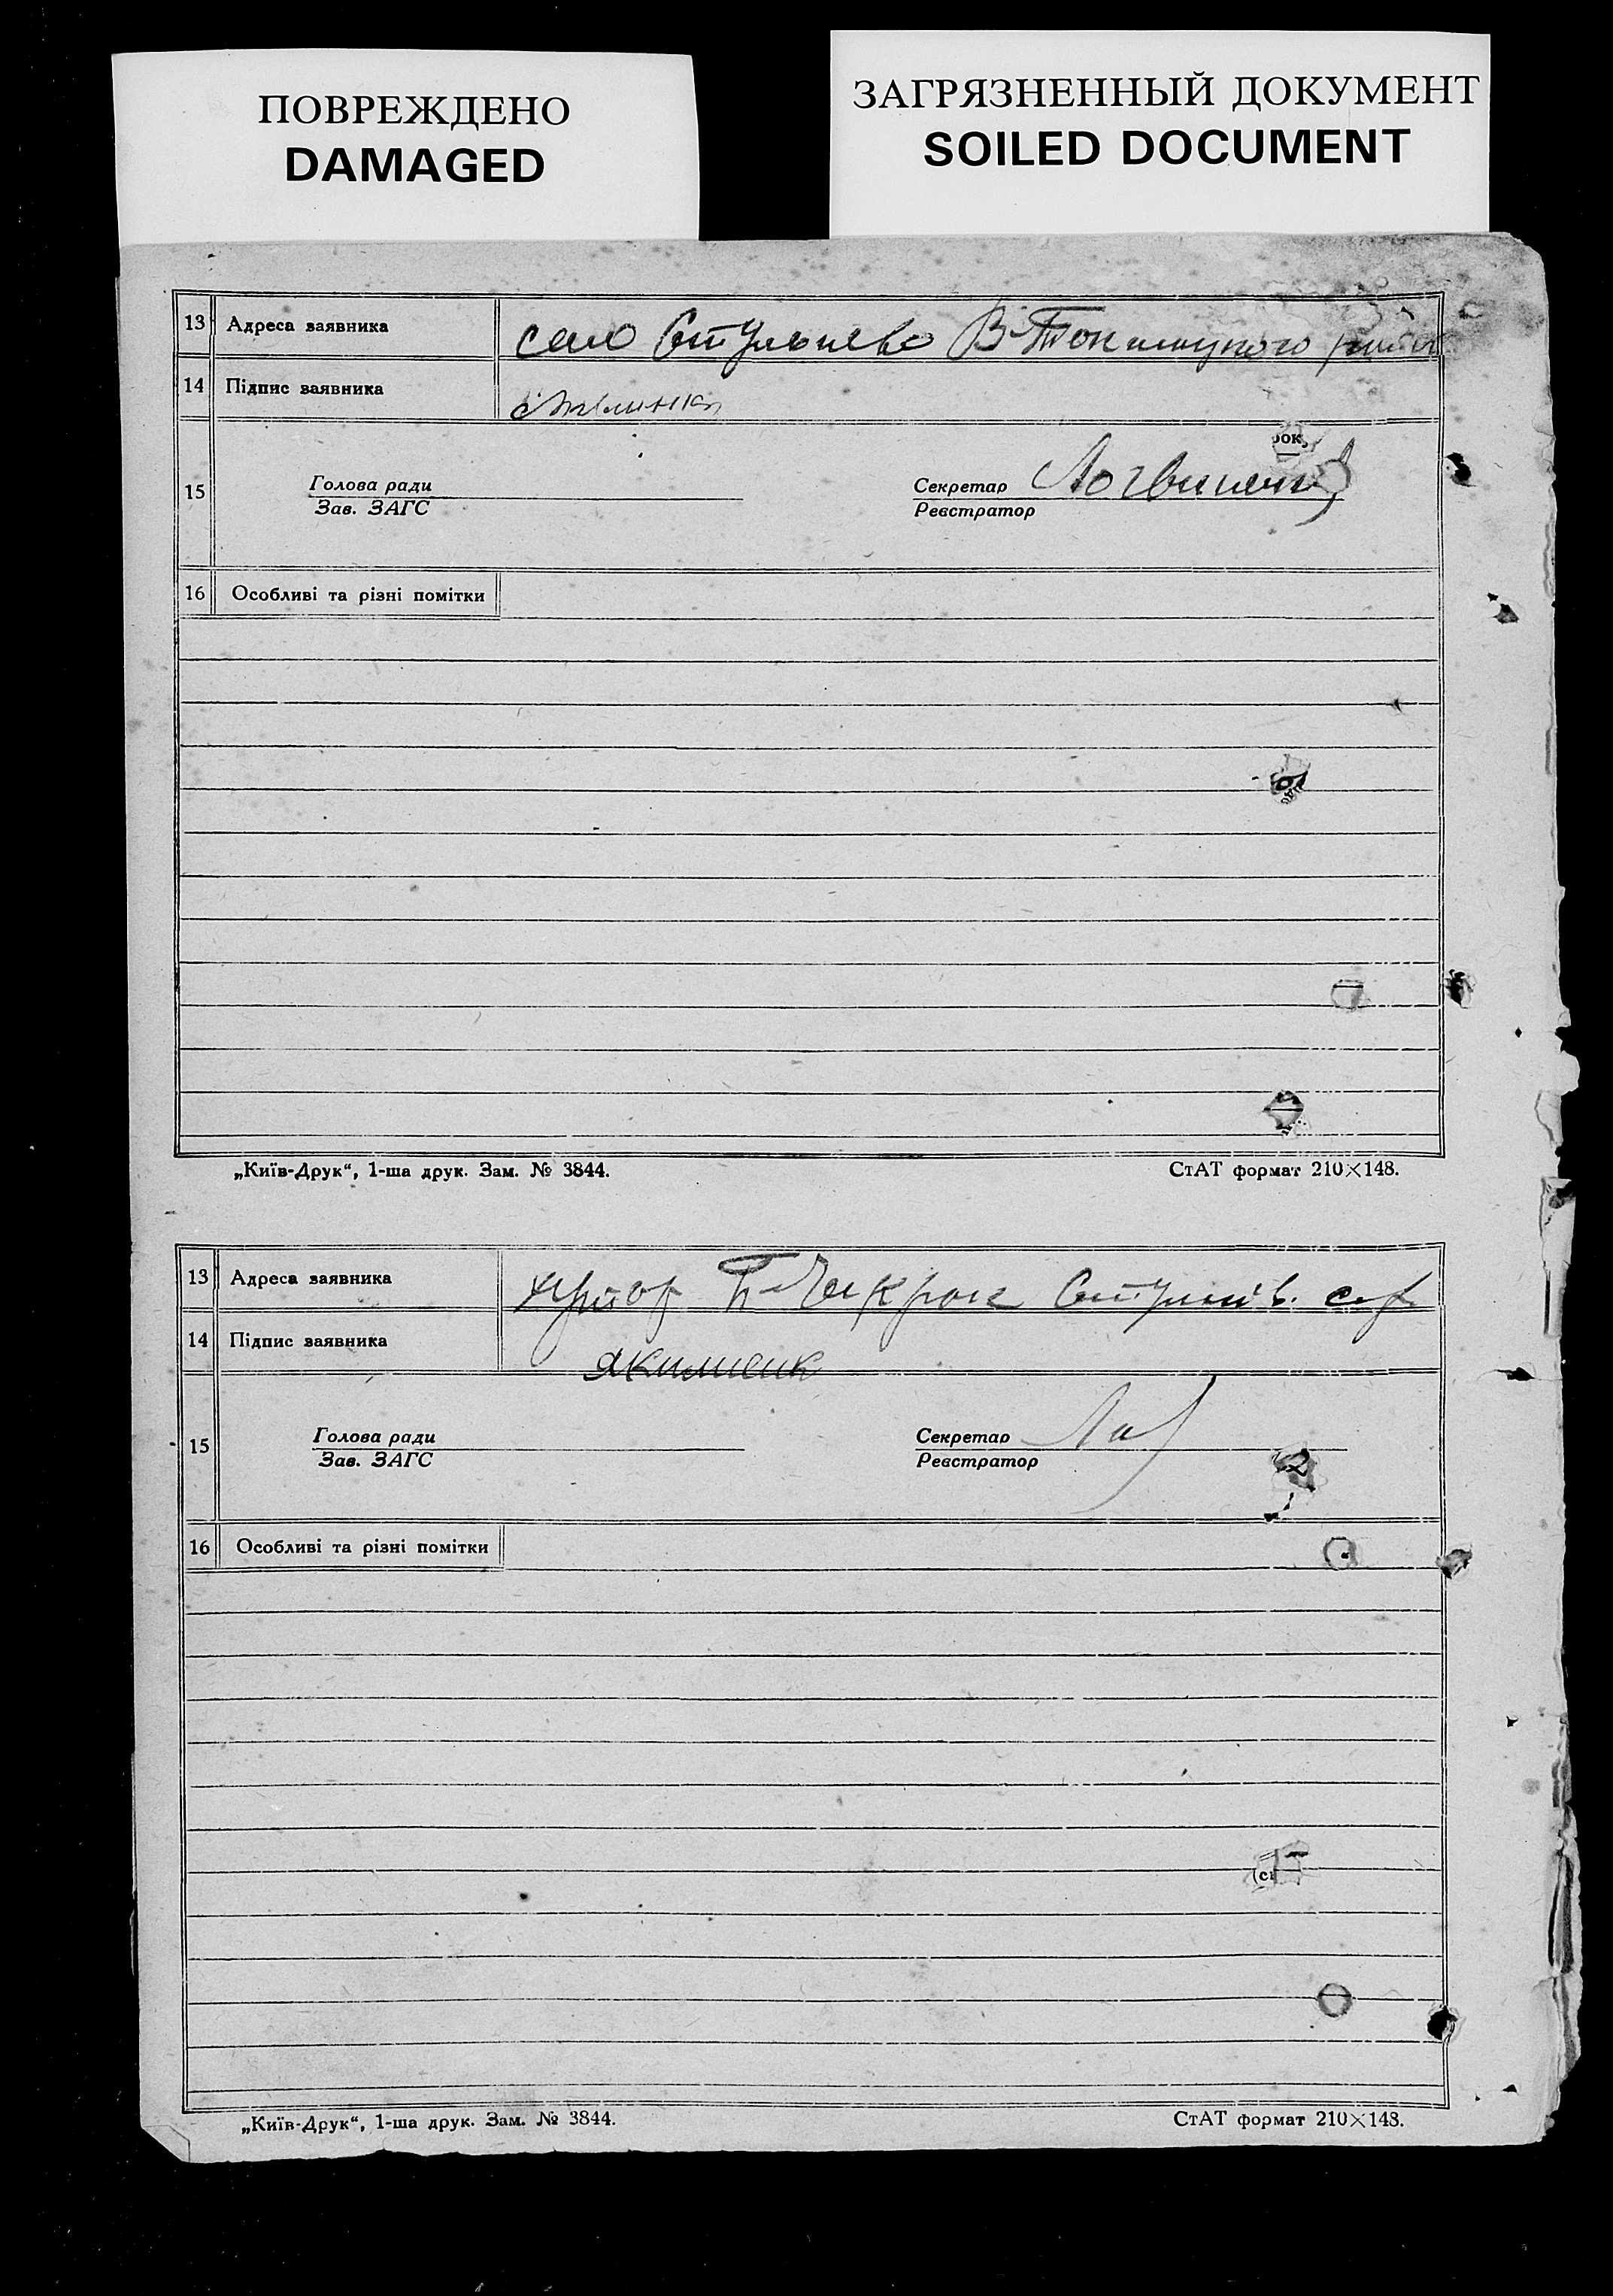 ПОВРЕЖДЕНО
DAMAGED
ЗАГРЯЗНЕННЫЙ ДОКУМЕНТ
SOILED DOCUMENT
13 Адреса заявника село В-Токмацького
14 Підпис заявника
року
15 Голова ради Секретар Логвиненко
Зав. ЗАГС Реєстратор
16 Особливі та різні помітки
„Київ-Друк“, 1-ша друк. Зам. № 3844.
СтАТ формат 210×148.
13 Адреса заявника хутор
14 Підпис заявника Якименк
15 Голова ради Секретар
Зав. ЗАГС Реєстратор
16 Особливі та різні помітки
„Київ-Друк“, 1-ша друк. Зам. № 3844.
СтАТ формат 210×148.